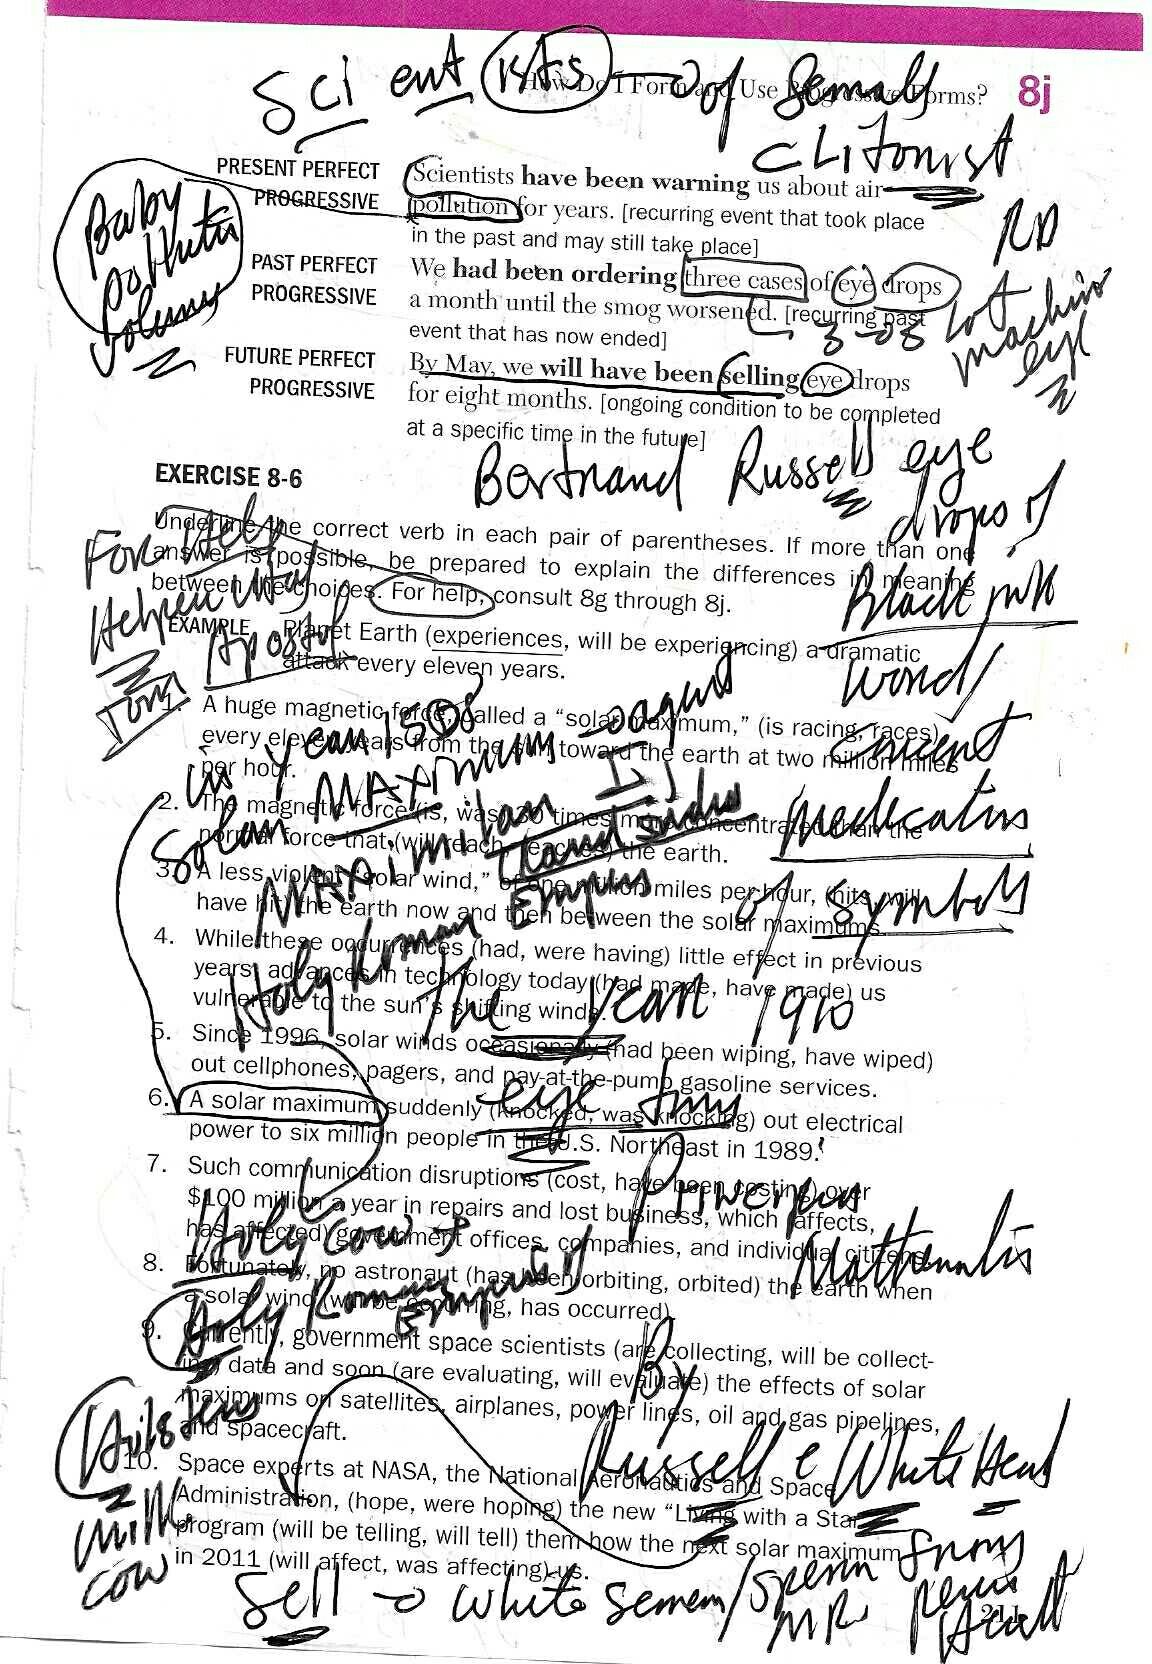 Scient ists of Semals
How Do I Form and Use Progressive Forms? 8j
Clitorist
PRESENT PERFECT Scientists have been warning us about air
PROGRESSIVE pollution for years. [recurring event that took place
in the past and may still take place]
Baby
pollution
PAST PERFECT We had been ordering three cases of eye drops
PROGRESSIVE a month until the smog worsened. [recurring past
event that has now ended]
3-08
lot
machine
eye
FUTURE PERFECT By May, we will have been selling eye drops
PROGRESSIVE for eight months. [ongoing condition to be completed
at a specific time in the future]
Bertrand Russell eye
drops of
Black ink
word/
medication
of symbols
EXERCISE 8-6
Underline the correct verb in each pair of parentheses. If more than one
answer is possible, be prepared to explain the differences in meaning
between the choices. For help, consult 8g through 8j.
For Help
EXAMPLE Planet Earth (experiences, will be experiencing) a dramatic
attack every eleven years.
Apostol
Tom
1. A huge magnetic force, called a “solar maximum,” (is racing, races)
every eleven years from the sun toward the earth at two million miles
per hour.
in Year 1508
Solar MAXimums
2. The magnetic force (is, was) 30 times more concentrated than the
normal force that (will reach, reaches) the earth.
MAXimilian I
3. A less violent “solar wind,” of one million miles per hour, (hits, will
have hit) the earth now and then between the solar maximums.
Holy Roman Emperor
4. While these occurrences (had, were having) little effect in previous
years, advances in technology today (had made, have made) us
vulnerable to the sun’s shifting winds.
the year 1910
5. Since 1996, solar winds occasionally (had been wiping, have wiped)
out cellphones, pagers, and pay-at-the-pump gasoline services.
6. A solar maximum suddenly (knocked, was knocking) out electrical
power to six million people in the U.S. Northeast in 1989.
eye
7. Such communication disruptions (cost, have been costing) over
$100 million a year in repairs and lost business, which (affects,
has affected) government offices, companies, and individual citizens.
Holy cow
8. Fortunately, no astronaut (has been orbiting, orbited) the earth when
a solar wind (will be occurring, has occurred).
Holy Roman Emperor
9. Currently, government space scientists (are collecting, will be collect-
ing) data and soon (are evaluating, will evaluate) the effects of solar
maximums on satellites, airplanes, power lines, oil and gas pipelines,
and spacecraft.
By
Russell e White Head
10. Space experts at NASA, the National Aeronautics and Space
Administration, (hope, were hoping) the new “Living with a Star”
program (will be telling, will tell) them how the next solar maximum
in 2011 (will affect, was affecting) us.
milk
cow
Sell white semem/sperm
MR. penis
Head
211